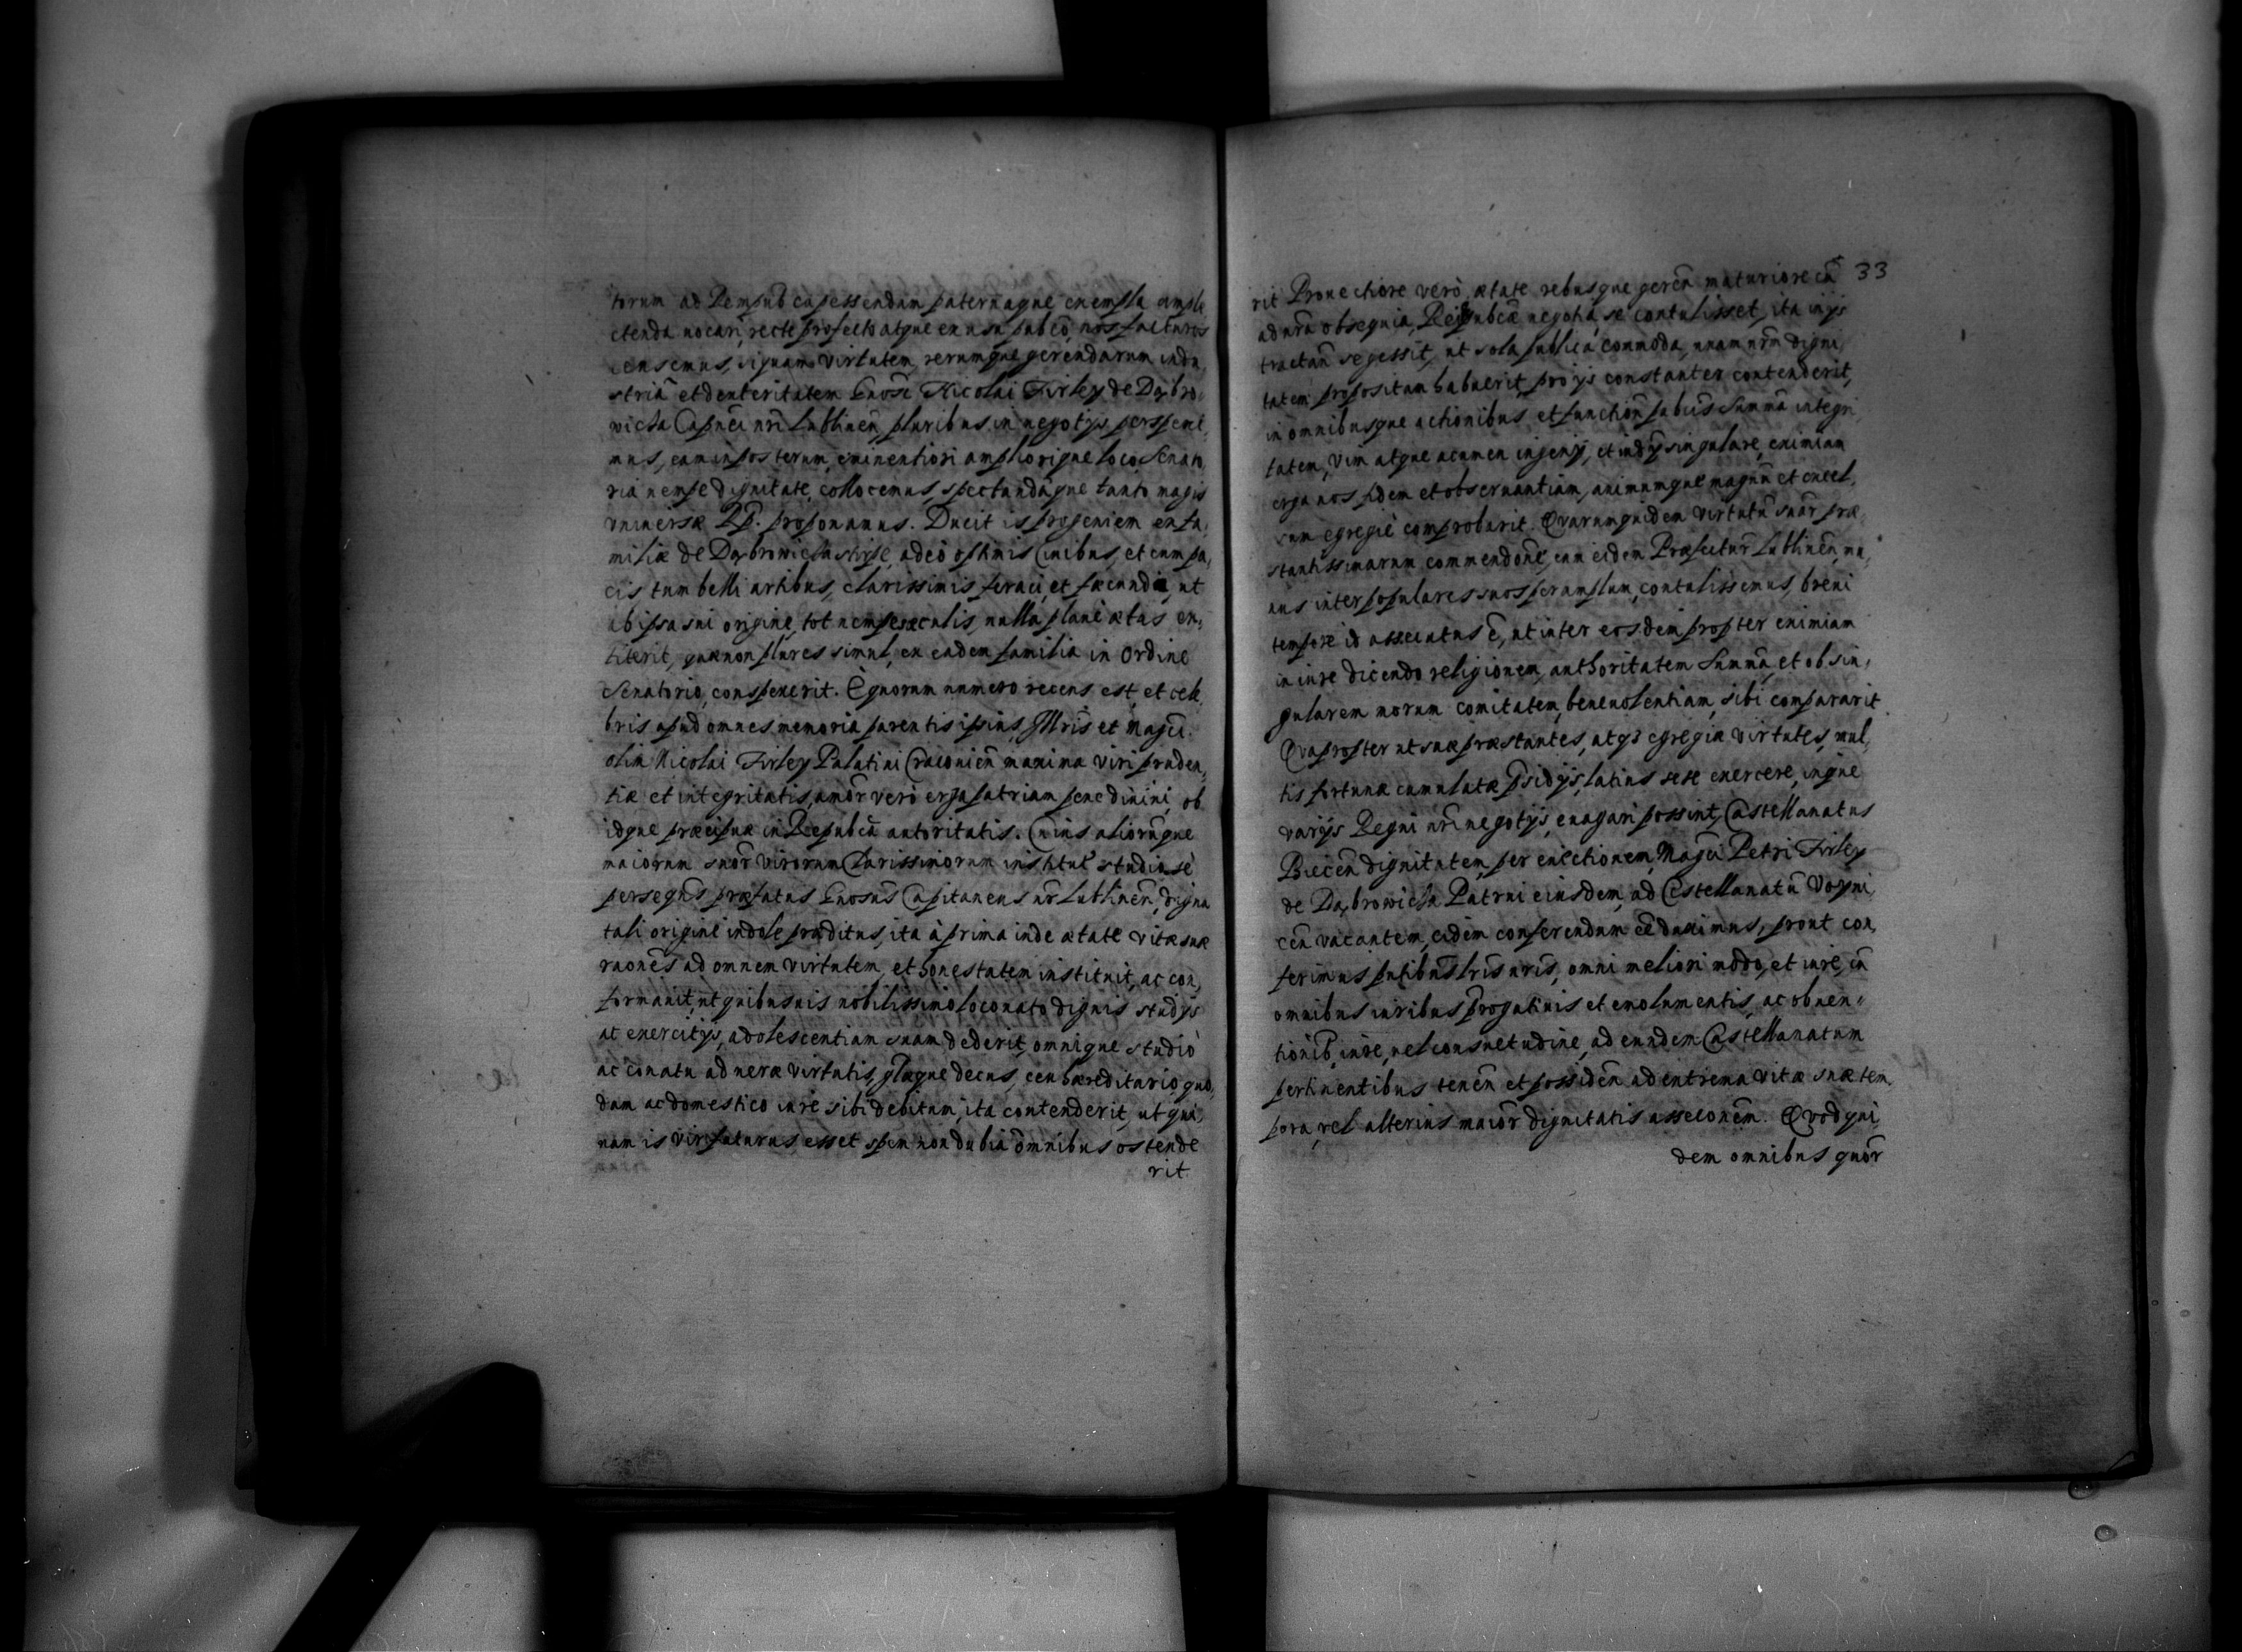 torum ad Rempub capessendam paternaque exempla ample,
ctenda uocari, recte profecto atque ex usu pubco, nos facturos
censemus, si quam virtutem, rerumque gerendarum indu,
striã et dexteritatem Gnosi Nicolai Firley de Dąbro,
wicza Capnei nri Lublinen̄, pluribus in negotys perspexi,
mus, eam in posterum, eminentiori, ampliorique loco, Senato,
ria nempe dignitate, collocemus, spectandāque tanto magis
vniuersæ Rp. proponamus. Ducit is progeniem ex fa,
miliæ de Dąbrowicza stirpe, adeò optimis Ciuibus, et cum pa,
cis tum belli artibus, clarissimis feraci, et fæcunda, ut
ab ipsa sui origine, tot nempe sæculis, nulla planè ætas ex,
titerit, quæ non plures simul, ex eadem familia in Ordine
Senatorio, conspexerit. E quorum numero recens est, et cele,
bris apud omnes memoria parentis ipsius, Illris et Magci.
olim Nicolai Firley Palatini Cracouien̄ maxima viri pruden,
tiæ et integritatis, amor̄ verò erga patriam pene diuini, ob
idque præcipuæ in Repubca autoritatis. Cuius aliorūque
maiorum suor̄ virorum Clarissimorum institut' studiosè
persequn̄s præfatus Gnosus Capitaneus nr̄ Lublinen̄, digna
tali origine indole præditus, ita à prima inde ætate vitæ suæ
raones ad omnem virtutem, et honestatem instituit, ac con,
formauit, ut quibusuis nobilissimo loco nato dignis studys
ac exercitys, adolescentiam suam dederit, omnique studio
ac conatu ad veræ virtutis, glæque decus, ceu hæreditario, quo,
dam ac domestico iure sibi debitum, ita contenderit, ut qui,
nam is vir futurus esset spem non dubiā omnibus ostende
rit
33
rit Prouectiore verò ætate rebusque geren̄ maturiore cū
ad nr̄a obsequia, Reipubcæ negotia se contulisset, ita in ys
tractan̄ se gessit, ut sola publica commoda, unam nr̄m digni,
tatem propositam habuerit, pro ys constanter contenderit,
in omnibusque actionibus et function̄ pubcis summā integri,
tatem, vim atque acumen ingenij, et indy singulare, eximiam
erga nos fidem et obseruantiam, animumque magnū et excel,
sum egregiè comprobarit. Quarum quidem virtutū suar̄ præ,
stantissimarum commendone, cum eidem Præfectur̄ Lublinen̄, mu,
nus inter populares suos peramplum, contulissemus, breui
tempore id assecutus ē, ut inter eosdem propter eximiam
in iure dicendo religionem, authoritatem summā, et ob sin,
gularem morum comitatem, beneuolentiam, sibi compararit
Quapropter ut suæ præstantes, atq3 egregiæ virtutes, mul,
tis fortunæ cumulatæ psidys, latius sese exercere, inque
varys Regni nri negotys, euagari possint, Castellanatus
Biecen̄ dignitatem, per euectionem, Magci Petri Firley
de Dąbrowicza Patrui eiusdem, ad Castellanatū Voyni,
cen̄ vacantem, eidem conferendum eē duximus, prout con,
ferimus pntibus lris nris, omni meliori modo, et iure, cū
omnibus iuribus p̄rogatiuis et emolumentis, ac obuen,
tionib, iure, vel consuetudine, ad eundem Castellanatum
pertinentibus tenen̄ et possiden̄ ad extrema vitæ suæ tem,
pora, vel alterius maior̄ dignitatis assecōnem. Quod qui,
dem omnibus quor̄